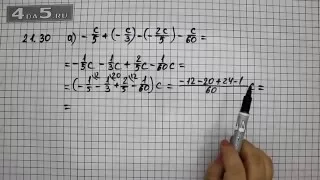 4DA5.RU
21.30 а) - c/5 + (- c/3) - (- 2c/5) - c/60 =
= - 1/5 c - 1/3 c + 2/5 c - 1/60 c =
= (- 1/5 \12 - 1/3 \20 + 2/5 \12 - 1/60) c = (-12-20+24-1)/60 c =
=